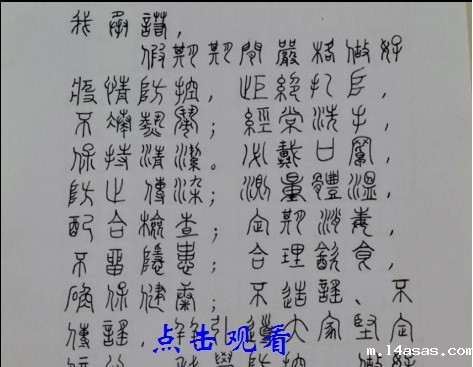 我承諾，
假期期間嚴格做好
疫情防控， 拒絕扎堆，
不湊熱鬧； 經常洗手，
保持清潔。 必戴口罩，
防止傳染； 測量體溫，
配合檢查； 定期消毒，
不留隱患； 合理飲食，
確保健康； 不造謠、不
傳謠，引導大家堅定
點击观看
學 防控
m.14asas.com